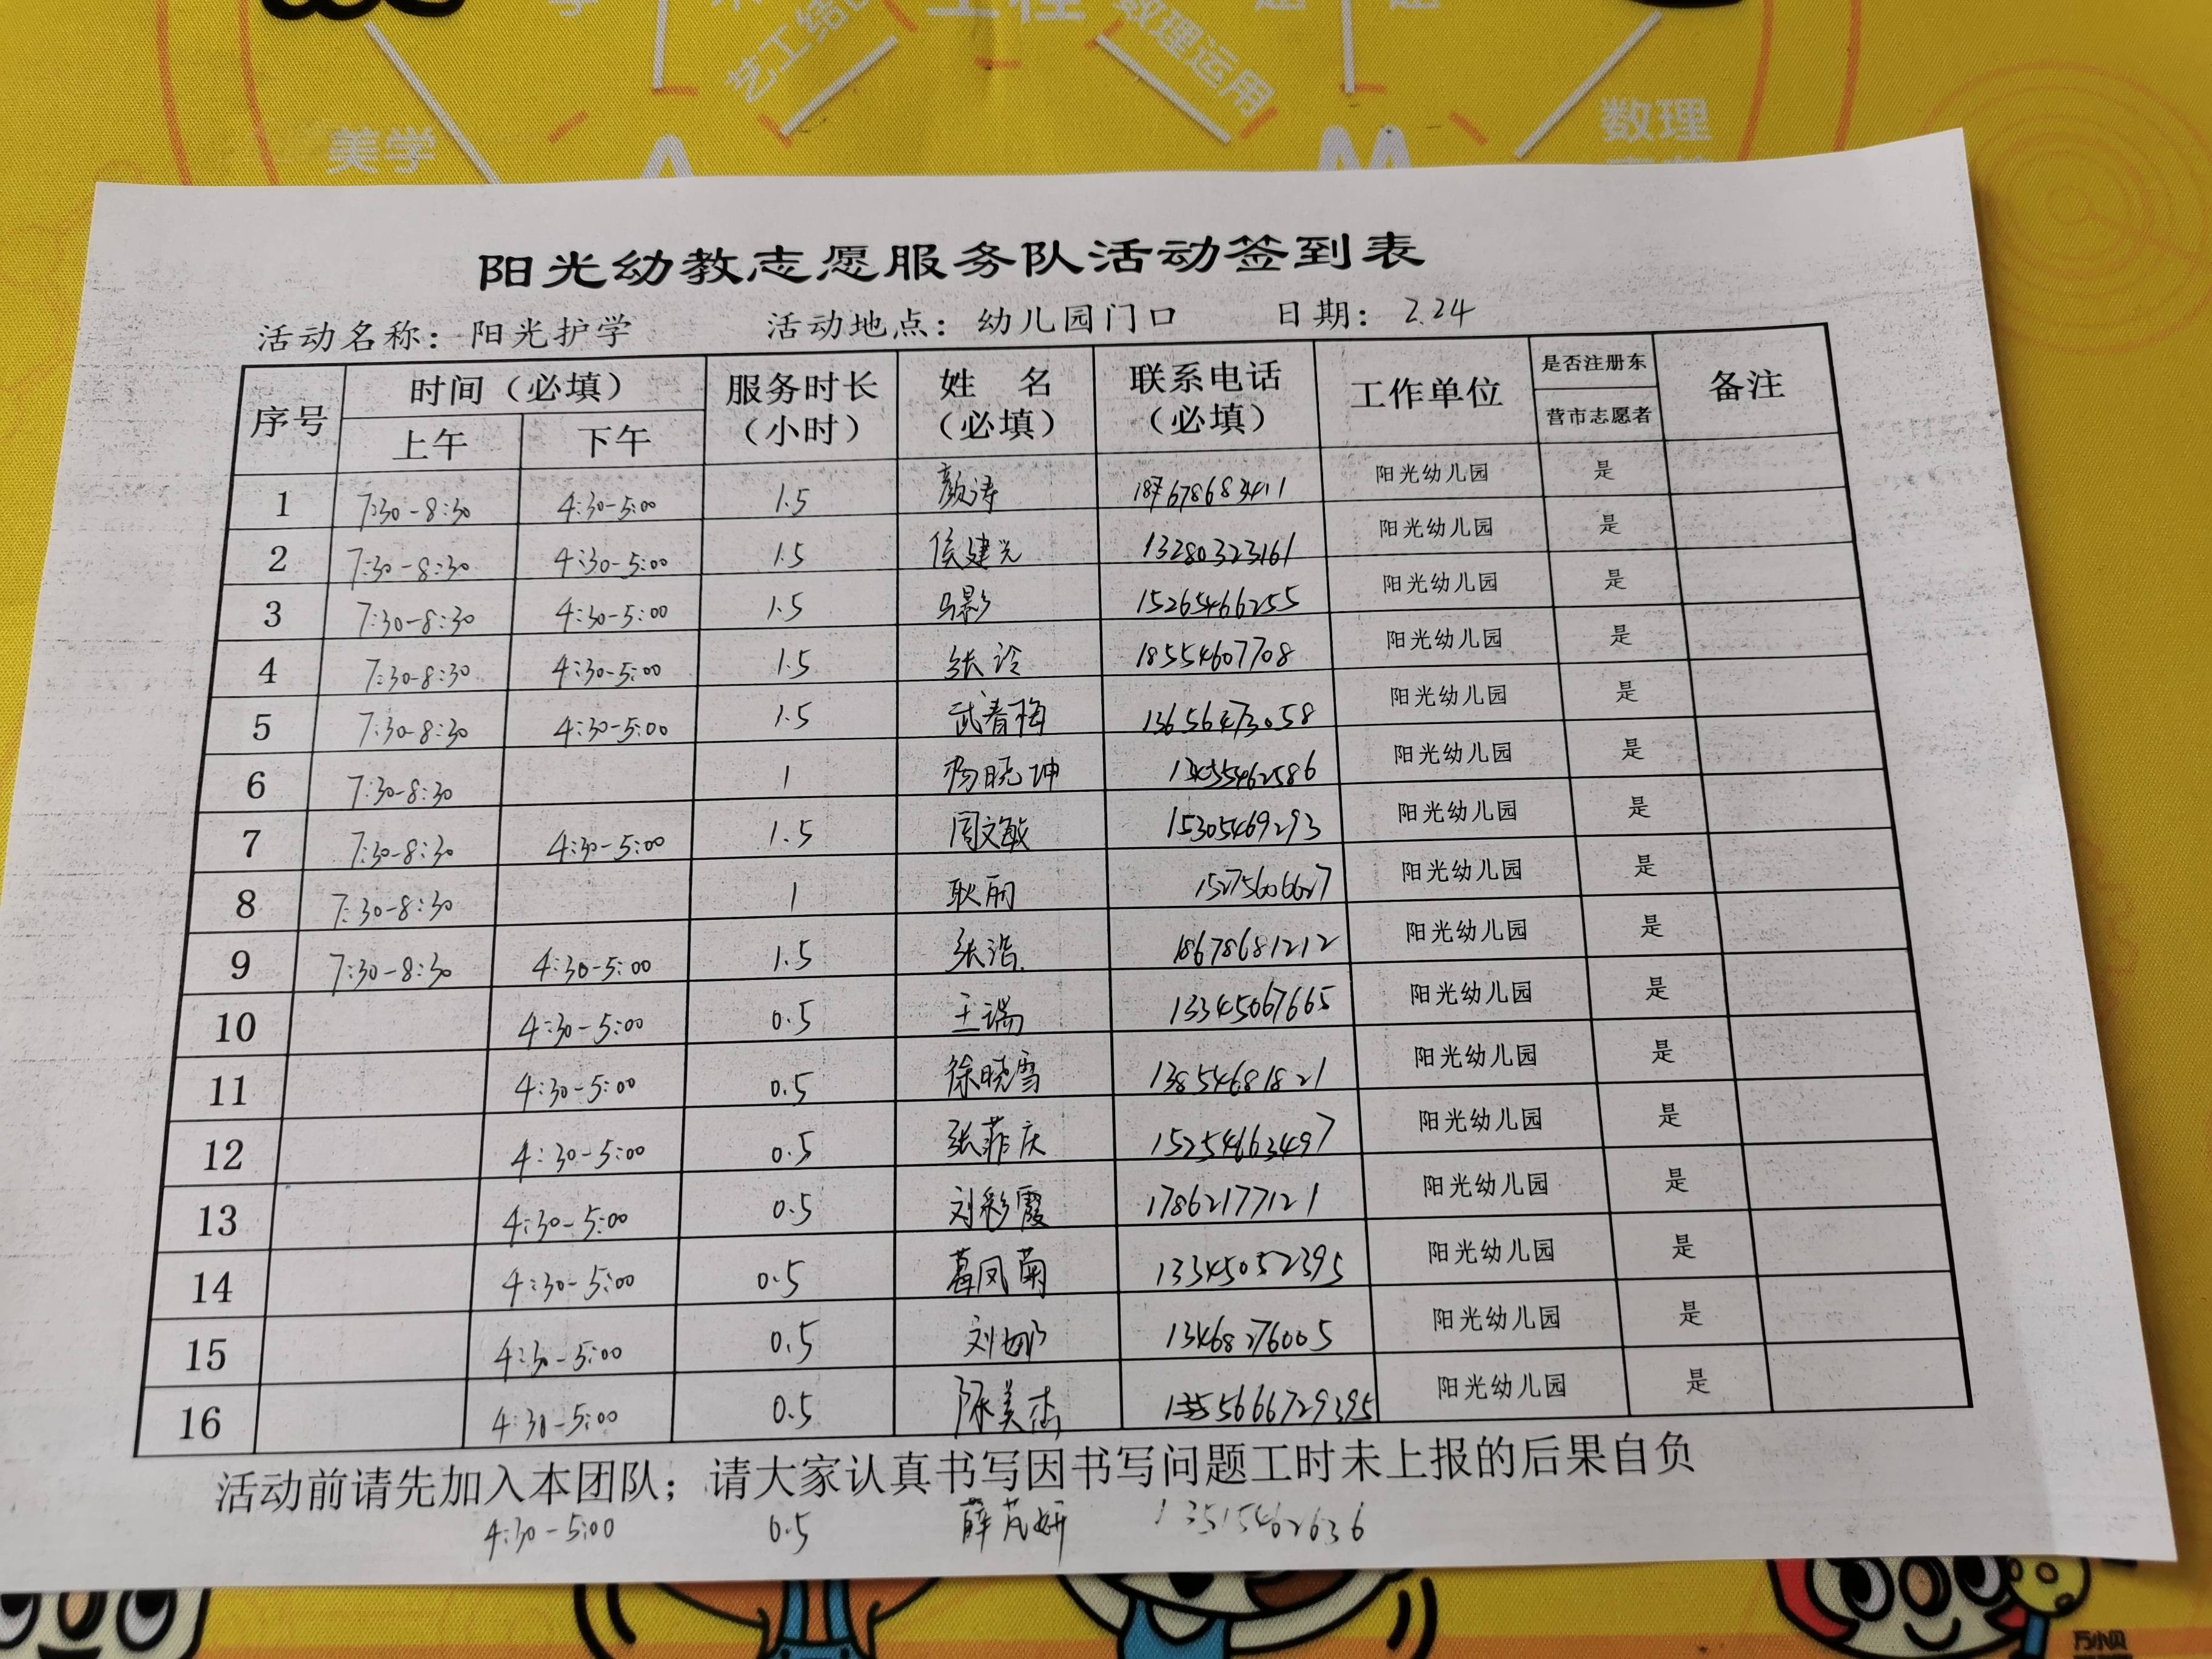 艺工结合
工程
数理运用
美学
A
M
数理
阳光幼教志愿服务队活动签到表
活动名称：阳光护学 活动地点：幼儿园门口 日期：2.24
序号 时间（必填） 服务时长（小时） 姓 名（必填） 联系电话（必填） 工作单位 是否注册东营市志愿者 备注
上午 下午
1 7:30-8:30 4:30-5:00 1.5 颜涛 阳光幼儿园 是
2 7:30-8:30 4:30-5:00 1.5 侯建光 13280323161 阳光幼儿园 是
3 7:30-8:30 4:30-5:00 1.5 马影 15265466255 阳光幼儿园 是
4 7:30-8:30 4:30-5:00 1.5 张玲 18554607708 阳光幼儿园 是
5 7:30-8:30 4:30-5:00 1.5 武春梅 13656473058 阳光幼儿园 是
6 7:30-8:30 1 杨晓坤 阳光幼儿园 是
7 7:30-8:30 4:30-5:00 1.5 周文敏 15305469293 阳光幼儿园 是
8 7:30-8:30 1 耿丽 15275606627 阳光幼儿园 是
9 7:30-8:30 4:30-5:00 1.5 张浩 18678681212 阳光幼儿园 是
10 4:30-5:00 0.5 王瑞 13345067665 阳光幼儿园 是
11 4:30-5:00 0.5 徐晓雪 13854681821 阳光幼儿园 是
12 4:30-5:00 0.5 张菲庆 15254663497 阳光幼儿园 是
13 4:30-5:00 0.5 刘彩霞 17862177121 阳光幼儿园 是
14 4:30-5:00 0.5 葛凤菊 13345052395 阳光幼儿园 是
15 4:30-5:00 0.5 刘娜 13468276005 阳光幼儿园 是
16 4:30-5:00 0.5 陈美杰 阳光幼儿园 是
活动前请先加入本团队；请大家认真书写因书写问题工时未上报的后果自负
4:30-5:00 0.5 薛芃妍 13515462636
万小贝